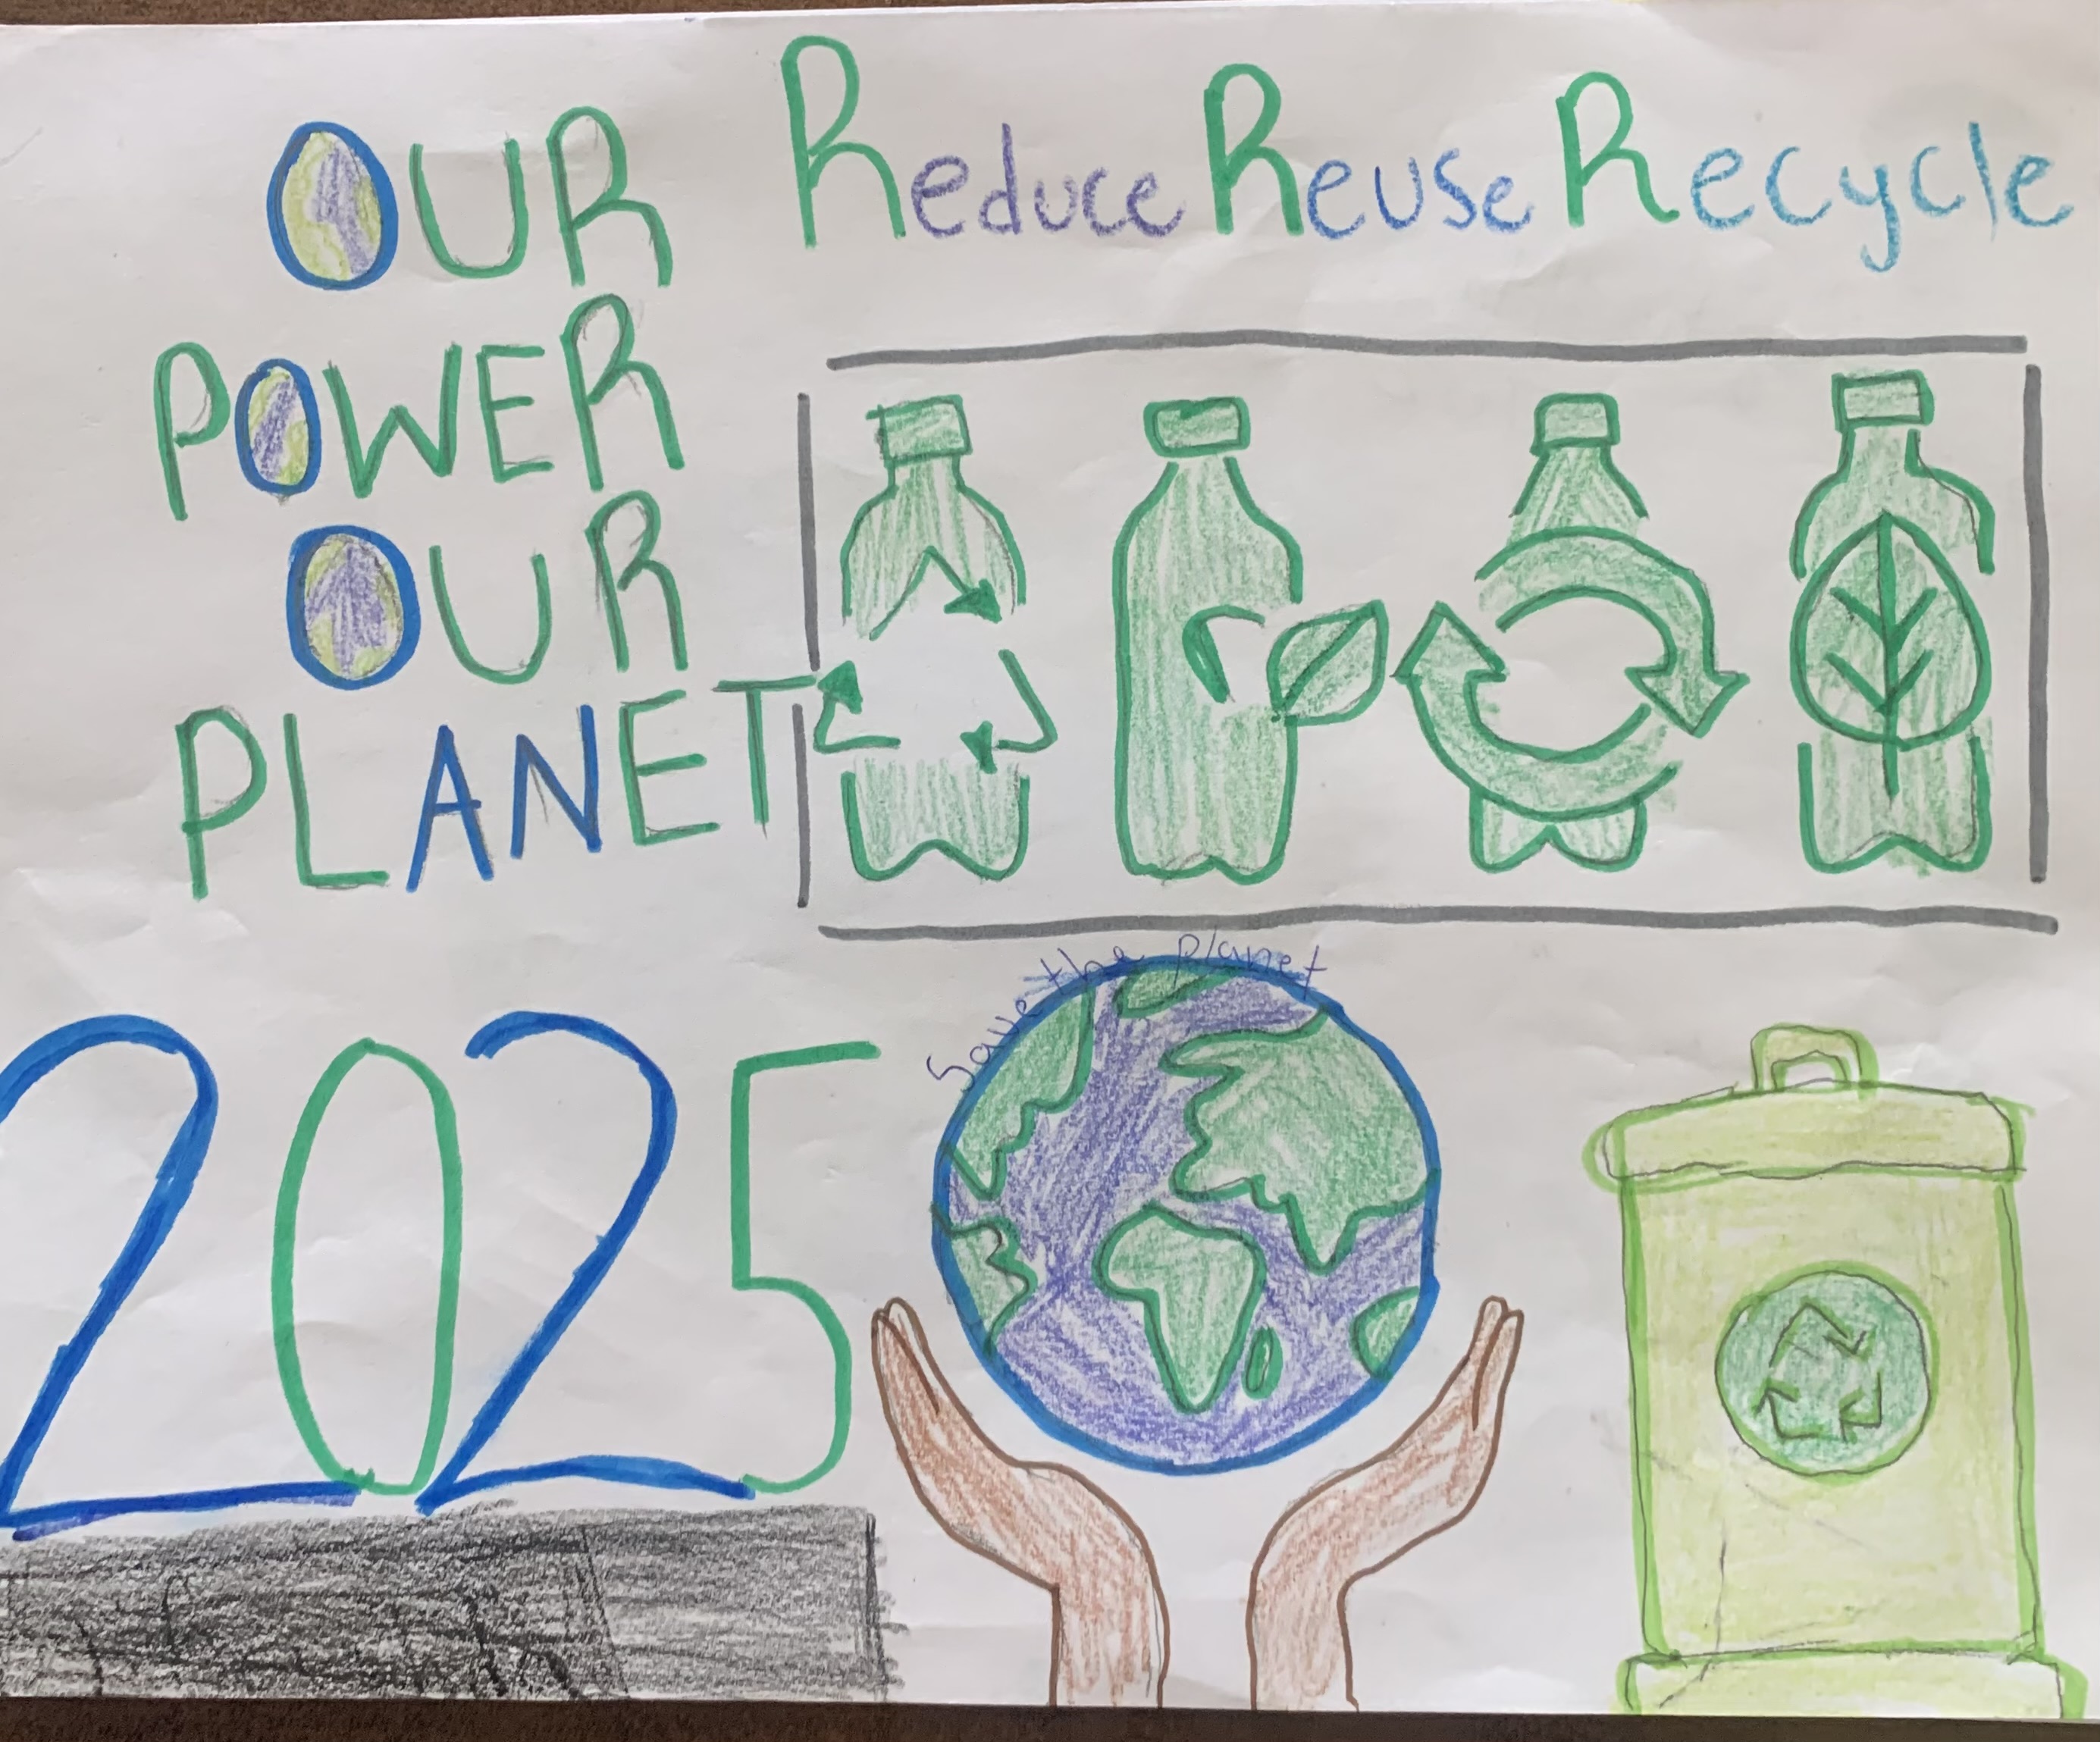 OUR
POWER
OUR
PLANET
Reduce Reuse Recycle
save the planet
2025